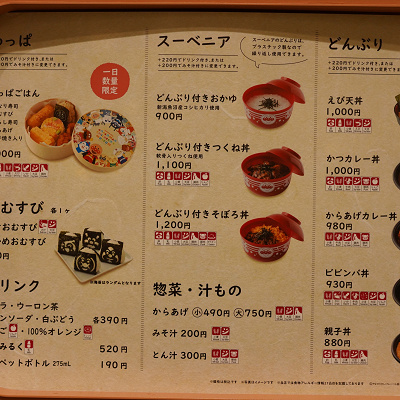 っぱ
+220円でみそ汁付きに変更できます。
一日
数量
限定
っぱごはん
900円
むすび 各1ヶ
おむすび
めおむすび
※海苔はランダムとなります
リンク
ラ・ウーロン茶
ンソーダ・白ぶどう 各390円
・100%オレンジ
みるく 520円
ペットボトル 275mL 190円
スーベニア
+220円でドリンク付き、または
+200円でみそ汁付きに変更できます。
スーベニアのどんぶりは、
プラスチック製なので
繰り返し使用できます。
どんぶり付きおかゆ
新潟魚沼産コシヒカリ使用
900円
どんぶり付きつくね丼
軟骨入りつくね使用
1,100円
どんぶり付きそぼろ丼
1,200円
惣菜・汁もの
からあげ 小490円 大750円
みそ汁 200円
とん汁 300円
どんぶり
+220円でドリンク付き、または
+200円でみそ汁付きに変更できます。
えび天丼
1,000円
かつカレー丼
1,000円
からあげカレー丼
980円
ビビンバ丼
930円
親子丼
880円